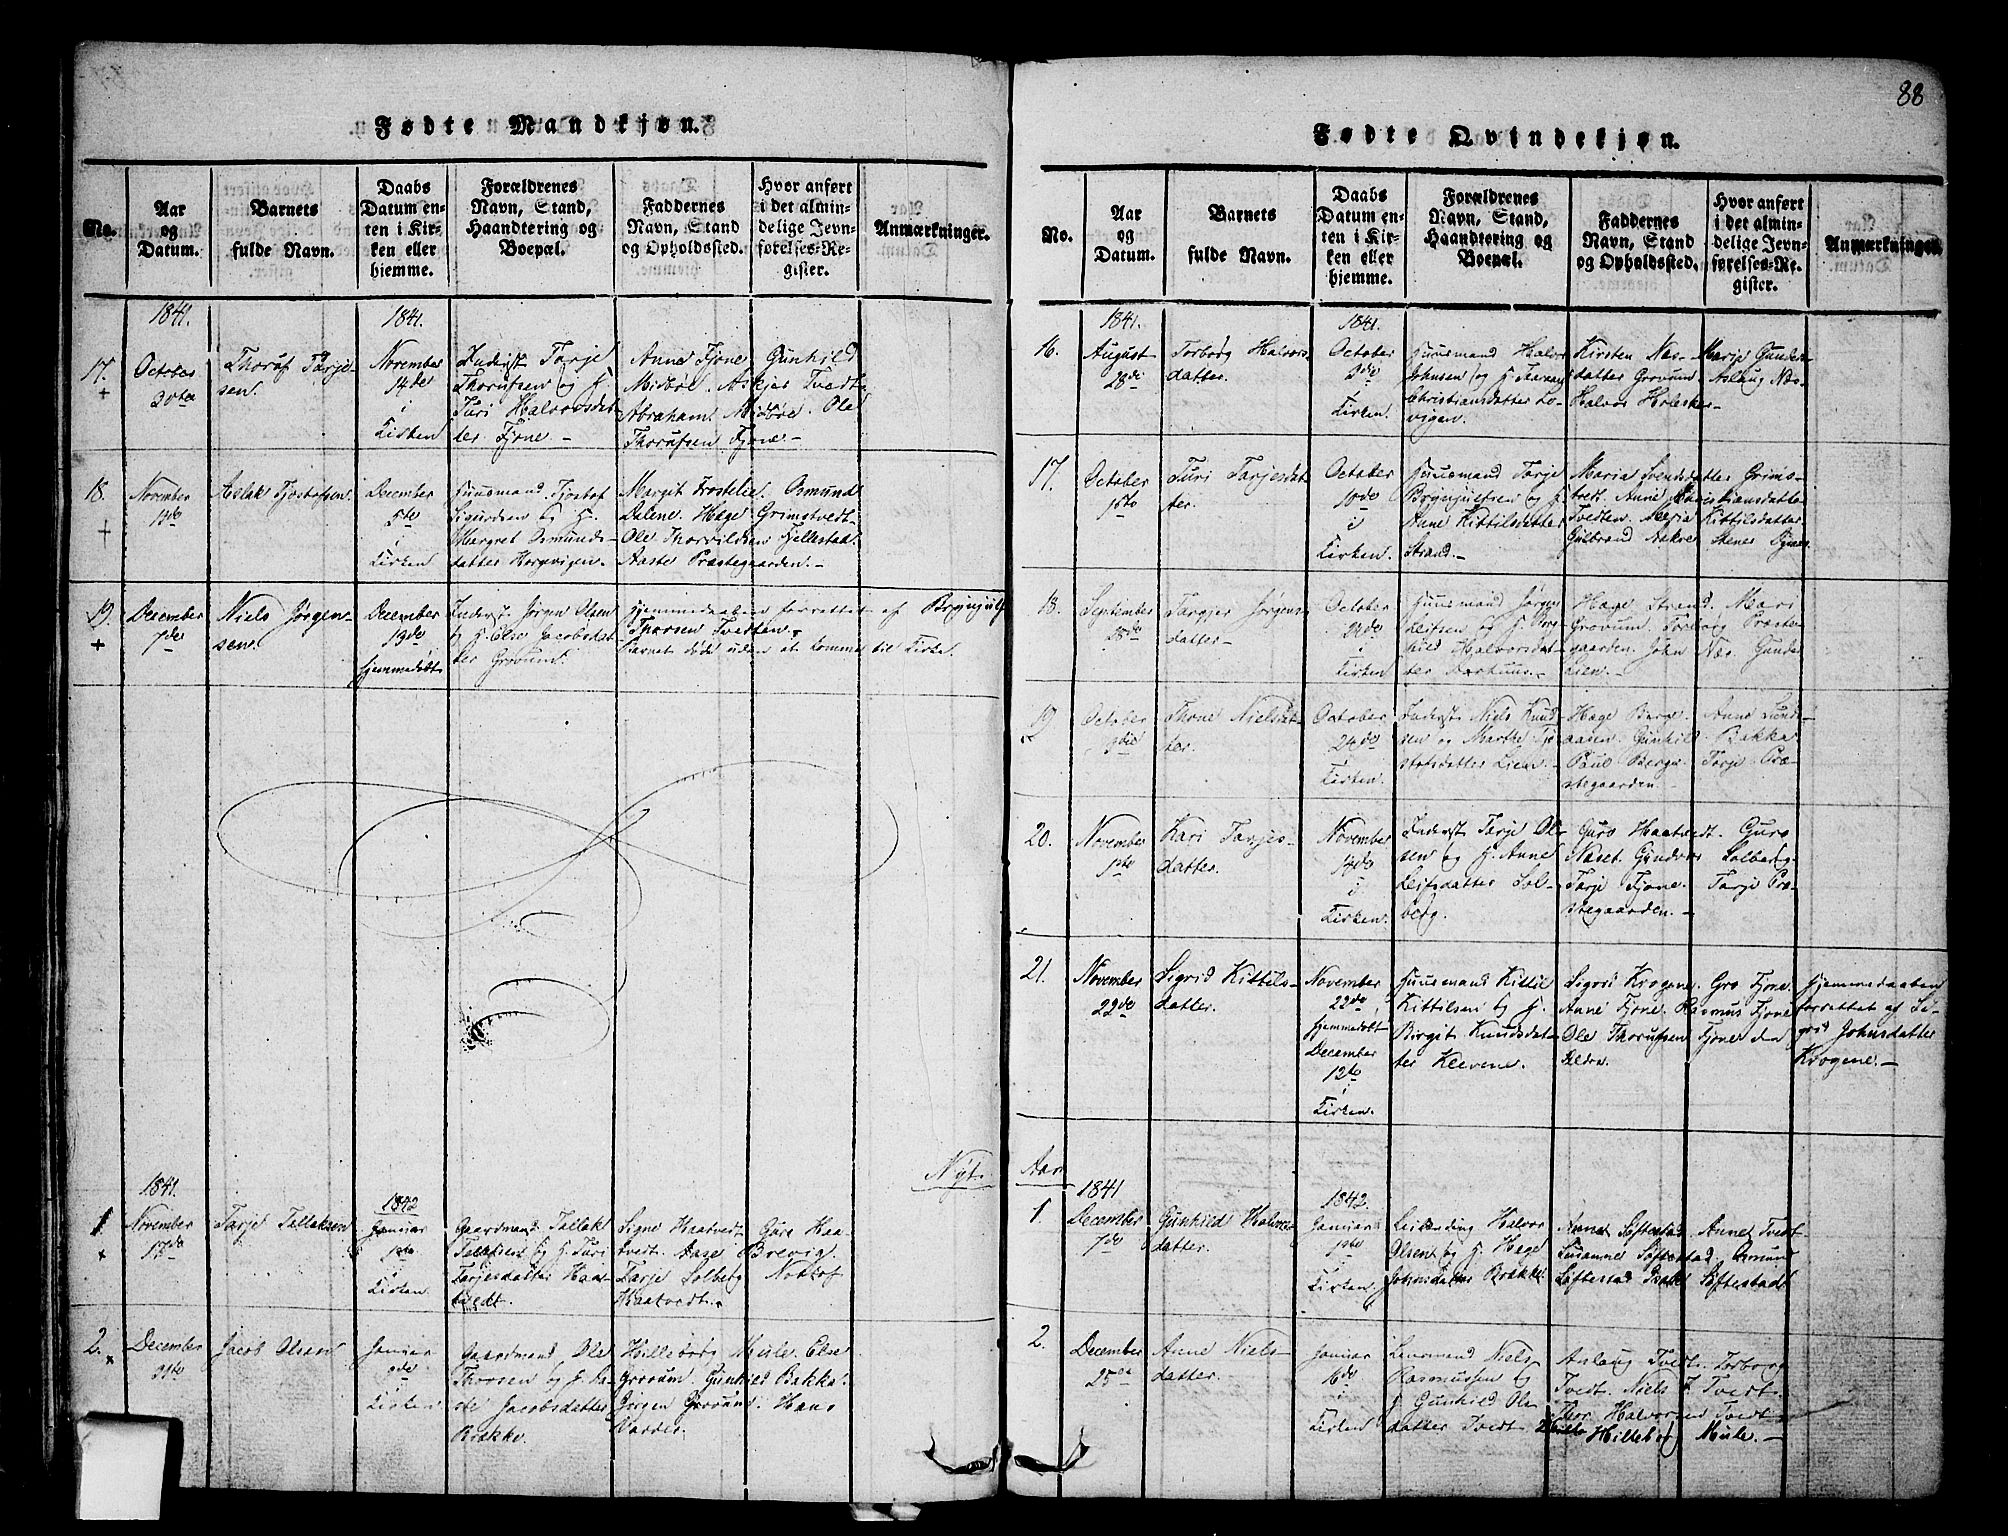 88
Fødte Mandkjøn.
No.
Aar
og
Datum.
Barnets
fulde Navn.
Daabs
Datum en-
ten i Kir-
ken eller
hjemme.
Forældrenes
Navn, Stand,
Haandtering og
Boepæl.
Faddernes
Navn, Stand
og Opholdssted.
Hvor anført
i det almin-
delige Jevn-
førelses-Re-
gister.
Anmærkninger.
1841.
17.
+
October
30te
Thoruf Tarje-
sen.
1841.
November
14de
i
Kirken
Inderst Tarje
Thorufsen og H.
Turi Halvorsdat-
ter Fjone –
Anne Fjone Gunhild
Midbøe. Askjer Tvedt.
Abraham Midbøe. Ole
Thorufsen Fjone –
18.
+
November
Aslak Fjostofsen.
December
5te
i
Kirken
Huusmand Fjostof
Sigurdsen og H.
Margret Osmunds-
datter Horgevigen.
Margit Frostelie. Osmund
Dalene. Hæge Grimstvedt.
Ole Thorvildsen Fjellestad.
Aaste Præstegaarden. –
19.
+
December
7de
Niels Jørgen-
sen.
December
19de
hjemmedøbt
Inderst Jørgen Olsen
og H. Else Jacobsdat-
ter Grovum.
Hjemmedaaben forrettet af Brynjulf
Thorsen Tvedten.
Barnet døde uden at komme til Kirke.
Nyt
1841.
1.
+
November
17de
Tarje Tallaksen
1842
Januar
1ste
i
Kirken
Gaardmand Tallak
Tellefsen og H. Turi
Tarjesdatter Haa-
tvedt.
Signe Haatvedt. Guro Haa-
tvedt. Aase Brevig.
Tarje Solberg Nottof
Haatvedt.
2.
x
December
31te
Jacob Olsen
Januar
i
Kirken
Gaardmand Ole
Thorsen og H. Aa-
se Jacobsdatter
Brække.
Hilleborg Mule. Else
Grovum. Gunhild Bakka.
Jørgen Grovum. Hans
Vorder.
Fødte Qvindekjøn.
No.
Aar
og
Datum.
Barnets
fulde Navn.
Daabs
Datum en-
ten i Kir-
ken eller
hjemme.
Forældrenes
Navn, Stand,
Haandtering og
Boepæl.
Faddernes
Navn, Stand
og Opholdssted.
Hvor anført
i det almin-
delige Jevn-
førelses-Re-
gister.
Anmærkninger.
1841.
16.
August
28de
Torborg Halvors-
datter.
1841.
October
3de
i
Kirken.
Huusmand Halvor
Johnsen og H. Taaran
Christiansdatter Lo-
vigen.
Kirsten Næs- Marje Gunders-
datter Grovum. Aslaug Næs.
Halvor Holesker –
17.
October
1ste
Turi Tarjesdat-
ter.
October
10de
i
Kirken.
Huusmand Tarje
Brynjulfsen og H.
Anne Kittilsdatter
Strand. –
Maria Svendsdatter Grims-
tvedt. Anne Christiansdatter
Tvedten. Maria Kittilsdatter
Gulbrand Aakre. Stener
18.
September
Targjer Jørgens-
datter –
October
24de
i
Kirken
Huusmand Jørgen
Leifsen og H. Torg-
hild Halvorsdat-
ter Aarhuus. –
Hæge Strand. Mari
Grovum. Torborg Præste-
gaarden. John Næs. Gunder
Lien. –
19
October
Thone Nielsdat-
ter.
October
24de
i
Kirken.
Inderst Niels Knud-
sen og Marthe Fjo-
stofsdatter Lien.
Hæge Berge. Anne Lunde-
aasen. Gunhild Bakka.
Paul Berge. Tarje Præ-
stegaarden –
20.
November
1ste
Kari Tarjes-
datter.
November
14de
i
Kirken.
Inderst Tarje Ole-
sen og H. Anne
Leifsdatter Sol-
berg.
Guro Haatvedt. Guro
Naset. Gundvor Solberg.
Tarje Fjone. Tarje Præ-
stegaarden. –
21.
November
22de
Sigrid Kittils-
datter.
November
22de
hjemmedøbt
December
12te
i
Kirken.
Huusmand Kittil
Kittilsen og H.
Birgit Knudsdat-
ter Klevene.
Sigrid Krogene. Gro Fjone.
Anne Fjone. Rasmus Fjone
Ole Thorufsen Fjone den
Ældre.
Hjemmedaaben
forrettet af Si-
grid Johnsdatter
Krogene. –
Aar
1841
1.
December
7de
Gunhild Halvors-
datter.
1842.
Januar
1ste
i
Kirken.
Leilænding Halvor
Olsen og H. Hæge
Johnsdatter Brække.
Anne Søftestad. Anne Tvedt.
Susanne Søftestad. Osmund
Søftestad Isak Søftestad
2.
December
25de
Anne Niels-
datter.
Januar
16de
i
Kirken
Lensmand Niels
Rasmussen og
H. Gunhild Ols-
datter Tvedt
Aslaug Tvedt. Torborg
Tvedt. Niels J. Tvedt.
Thor Halvorsen Tvedt
Hilleborg Mule. –